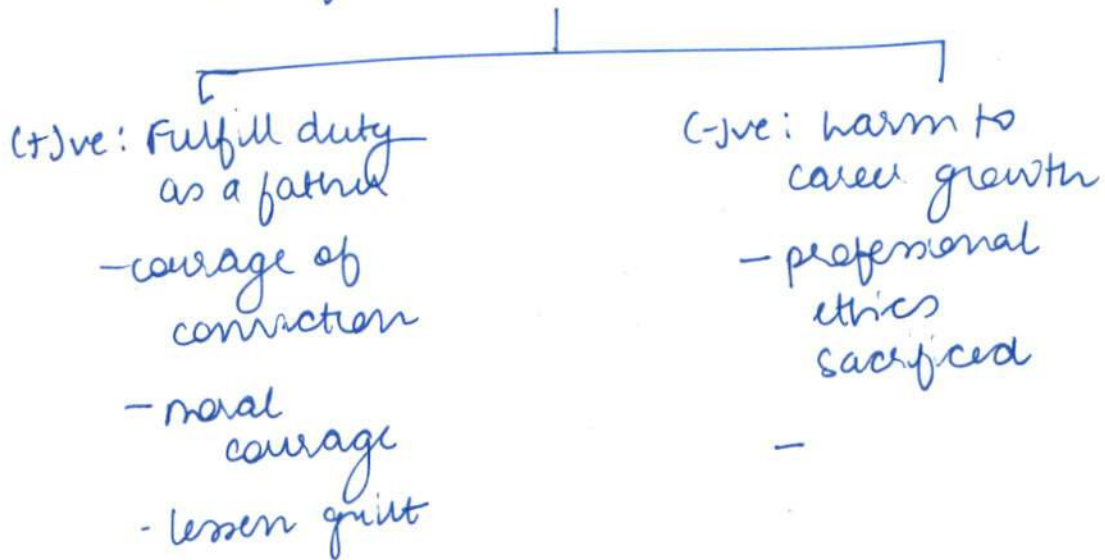 (+)ve: Fulfill duty
as a father
- courage of
conviction
- moral
courage
- lessen guilt
(-)ve: harm to
career growth
- professional
ethics
sacrificed
-